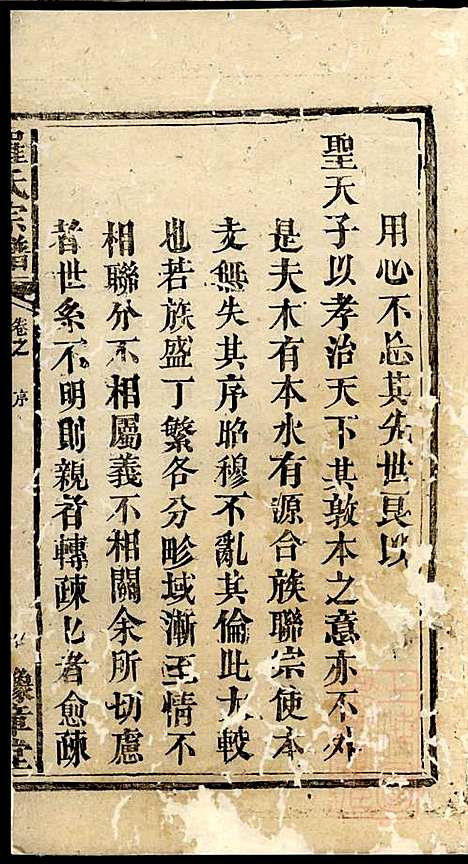 用心不忘其先世良以
聖天子以孝治天下其敦本之意亦不外
是夫木有本水有源合族聯宗使本
支無失其序昭穆不亂其倫此大較
也若族盛丁繁各分畛域漸至情不
相聯分不相屬義不相關余所切慮
者世系不明則親者轉疎已者愈疎
羅氏宗譜 卷之 序 豫章堂